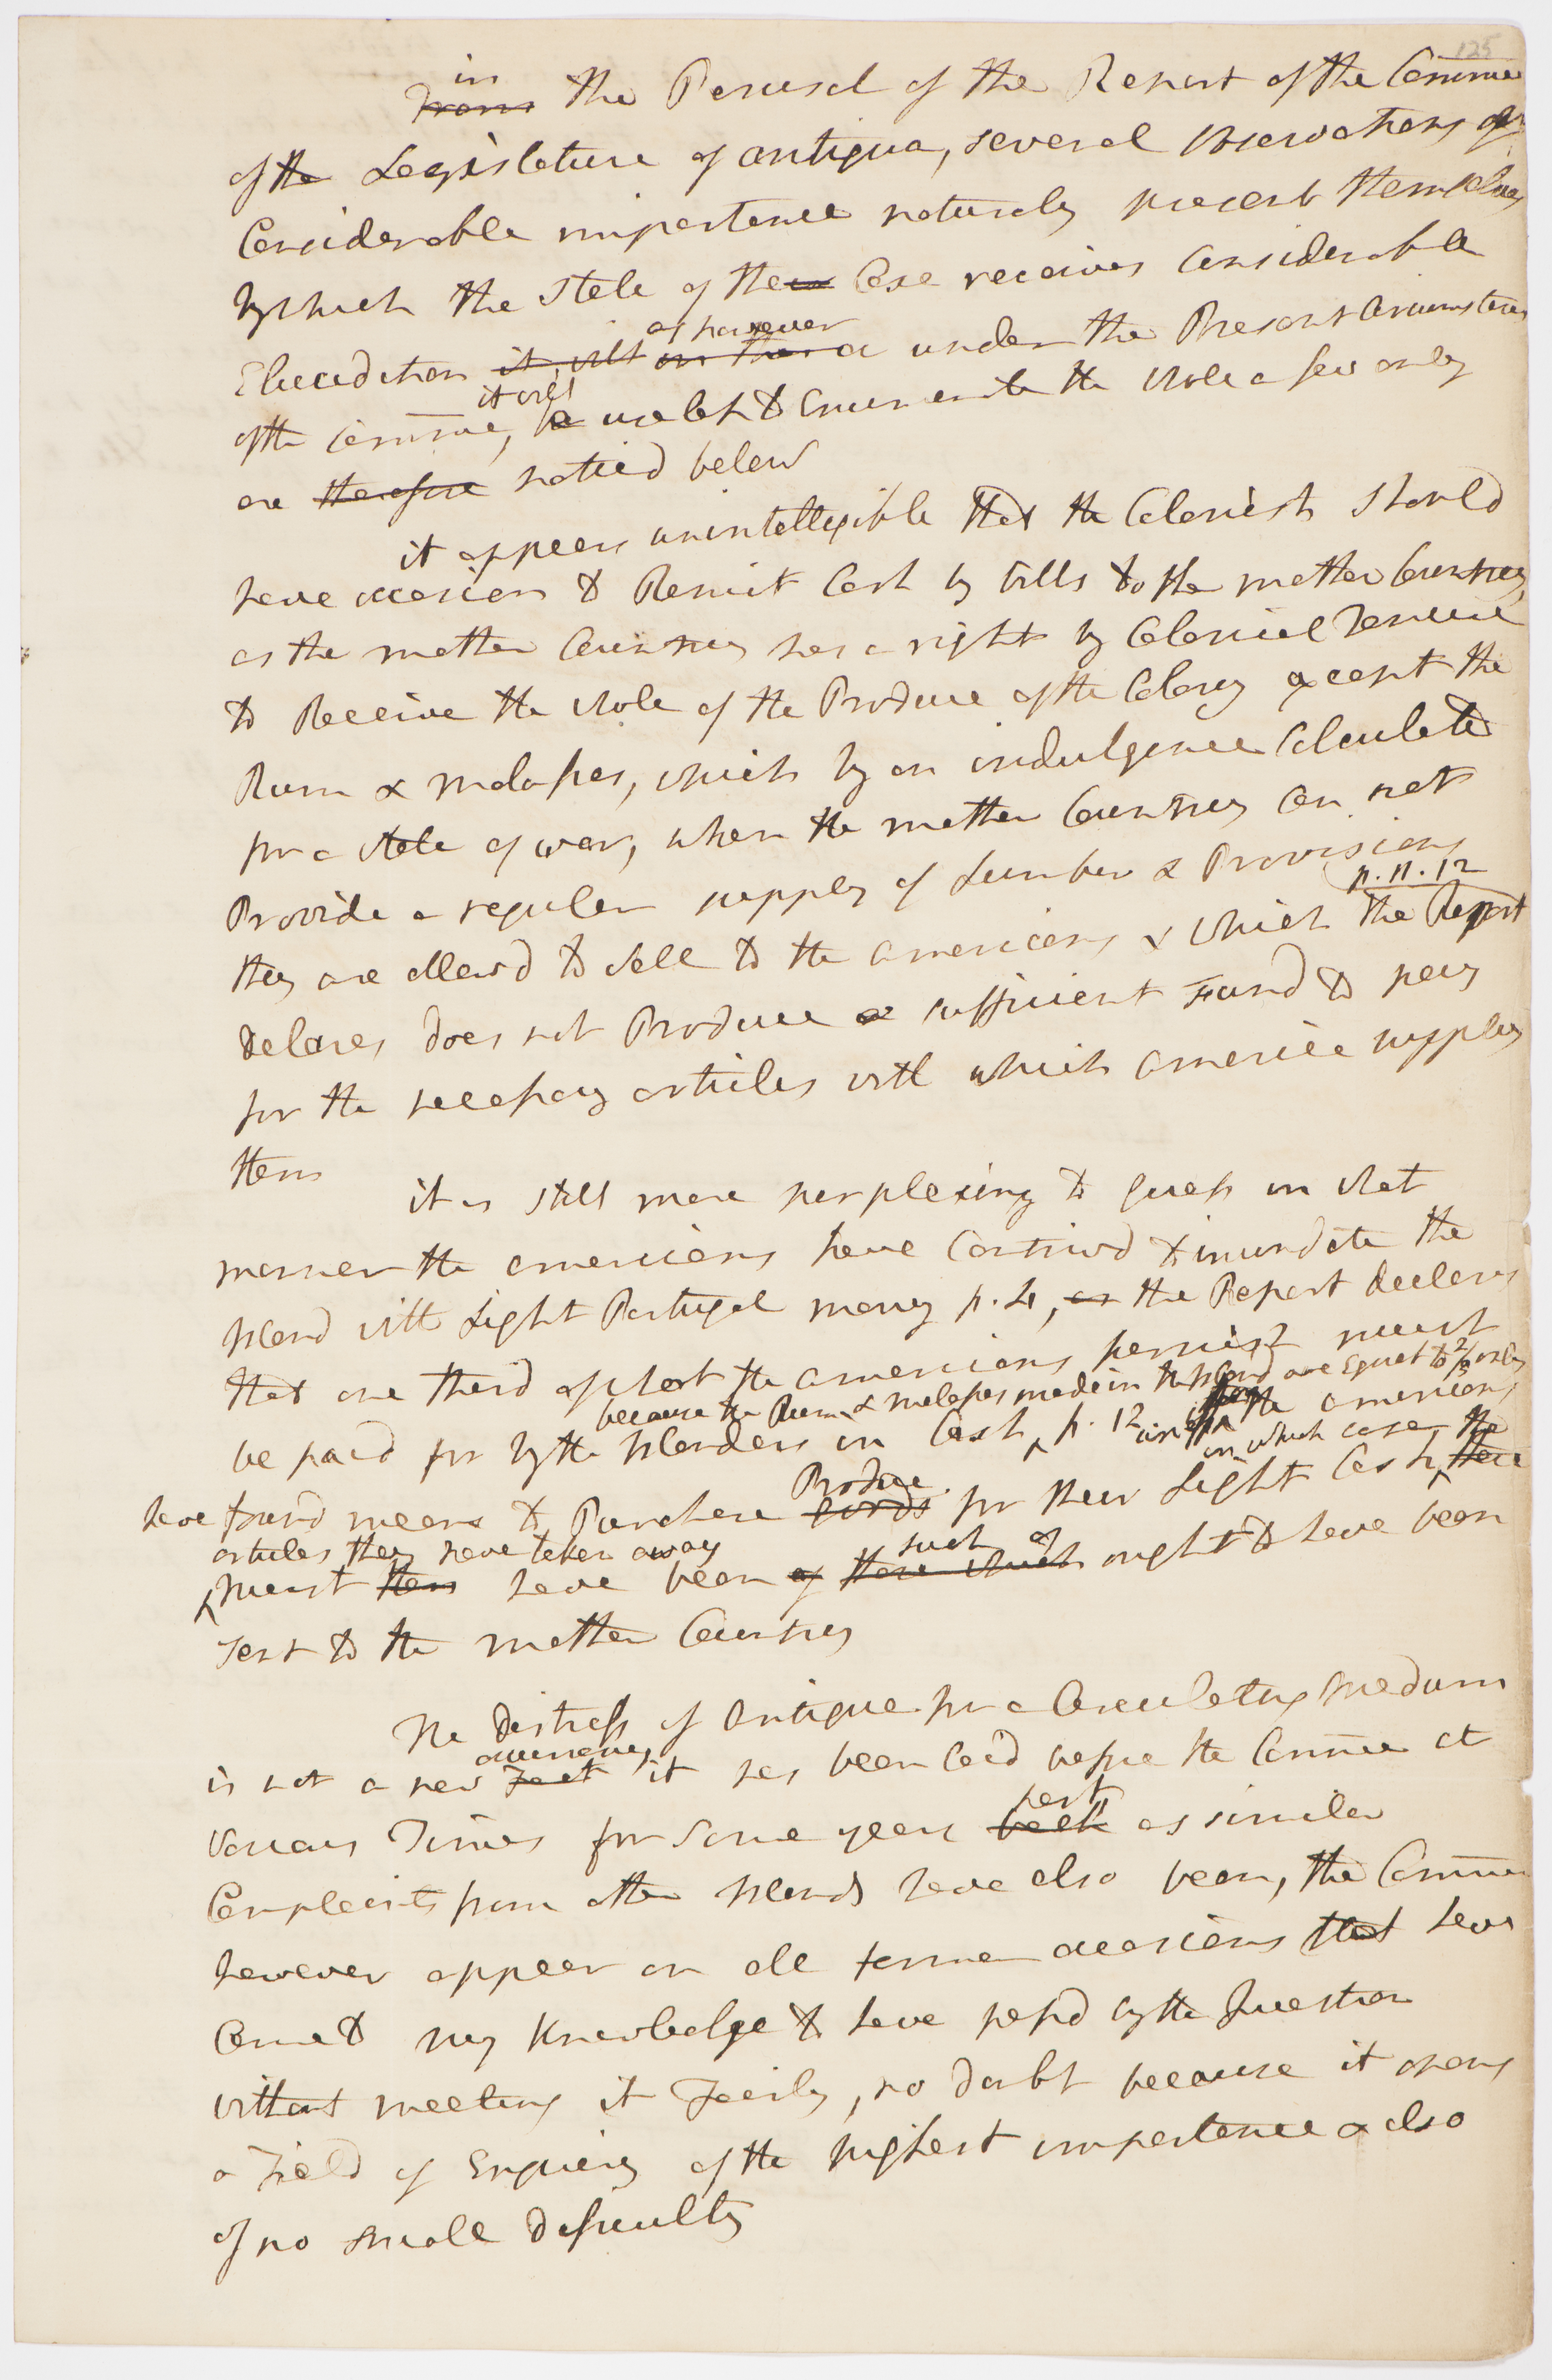 125
in
From the Perusal of the Report of the Committee
of the Legislature of antigua, several observations of
Considerable importance naturaly present themselves
by which the state of their Case receives Considerable
Elucidation it will as however under the Present Circumstances
of the Committee, it will be useless to Enumerate the whole a few only
are therefore noticd below
it appears unintelligible that the Colonists should
have occasion to Remit Cash by bills to the mother Country,
as the mother Country has a right by Colonial Tenure
to Receive the whole of the Produce of the Colony except the
Rum & molasses, which by an indulgence Calculated
for a state of war, when the mother Country Can not
Provide a regular supply of Lumber & Provisions
p. 11. 12
they are allowd to sell to the americans & which the Report
delares does not Produce a sufficient Fund to pay
for the necessary articles with which america supplys
them
it is still more perplexing to guess in what
manner the americans have Contrivd to inundate the
Island with Light Portugal money p. 4, as the Report declares
that one third of what the americans furnish must
because the Rum & molasses made in the Island are Equal to 2/3 only
be paid for by the Islanders in Cash, p. 12 if the americans
in which case the
have found means to Purchase Produce goods for their Light Cash these
articles they have taken away
such as
must then have been of those which ought to have been
sent to the mother Country
The distress of Antigua for a Circulating medium
occurrence
is not a new Fact it has been laid before the Committee at
past
various Times for some years back as similar
Complaints from other Islands have also been, the Committee
however appear on all former occasions that have
Come to my Knowledge to have passd by the Question
without meeting it Fairly, no doubt because it opens
a Field of Enquiry of the highest importance & also
of no small difficulty